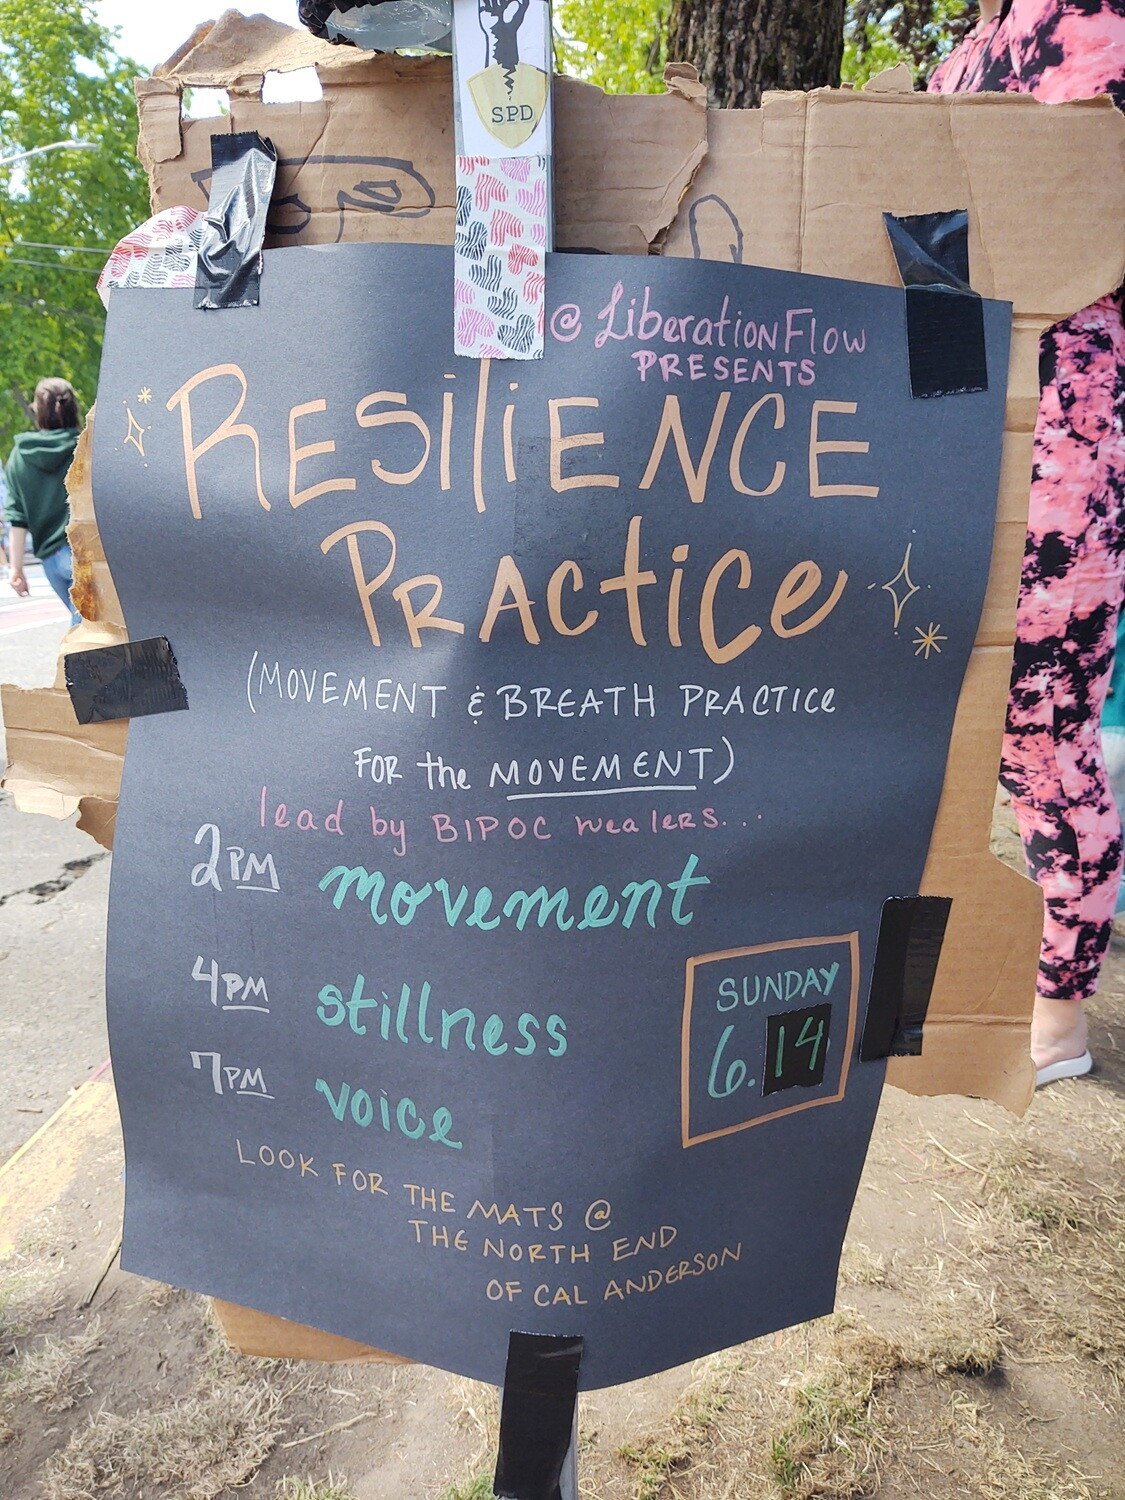 SPD
@ LiberationFlow
PRESENTS
RESiliENCE
PRActiCe
(MOVEMENT & BREATH PRACTICE
FOR the MOVEMENT)
lead by BIPOC healers...
2PM movement
4PM stillness
7PM voice
SUNDAY
6.14
LOOK FOR THE MATS @
THE NORTH END
OF CAL ANDERSON